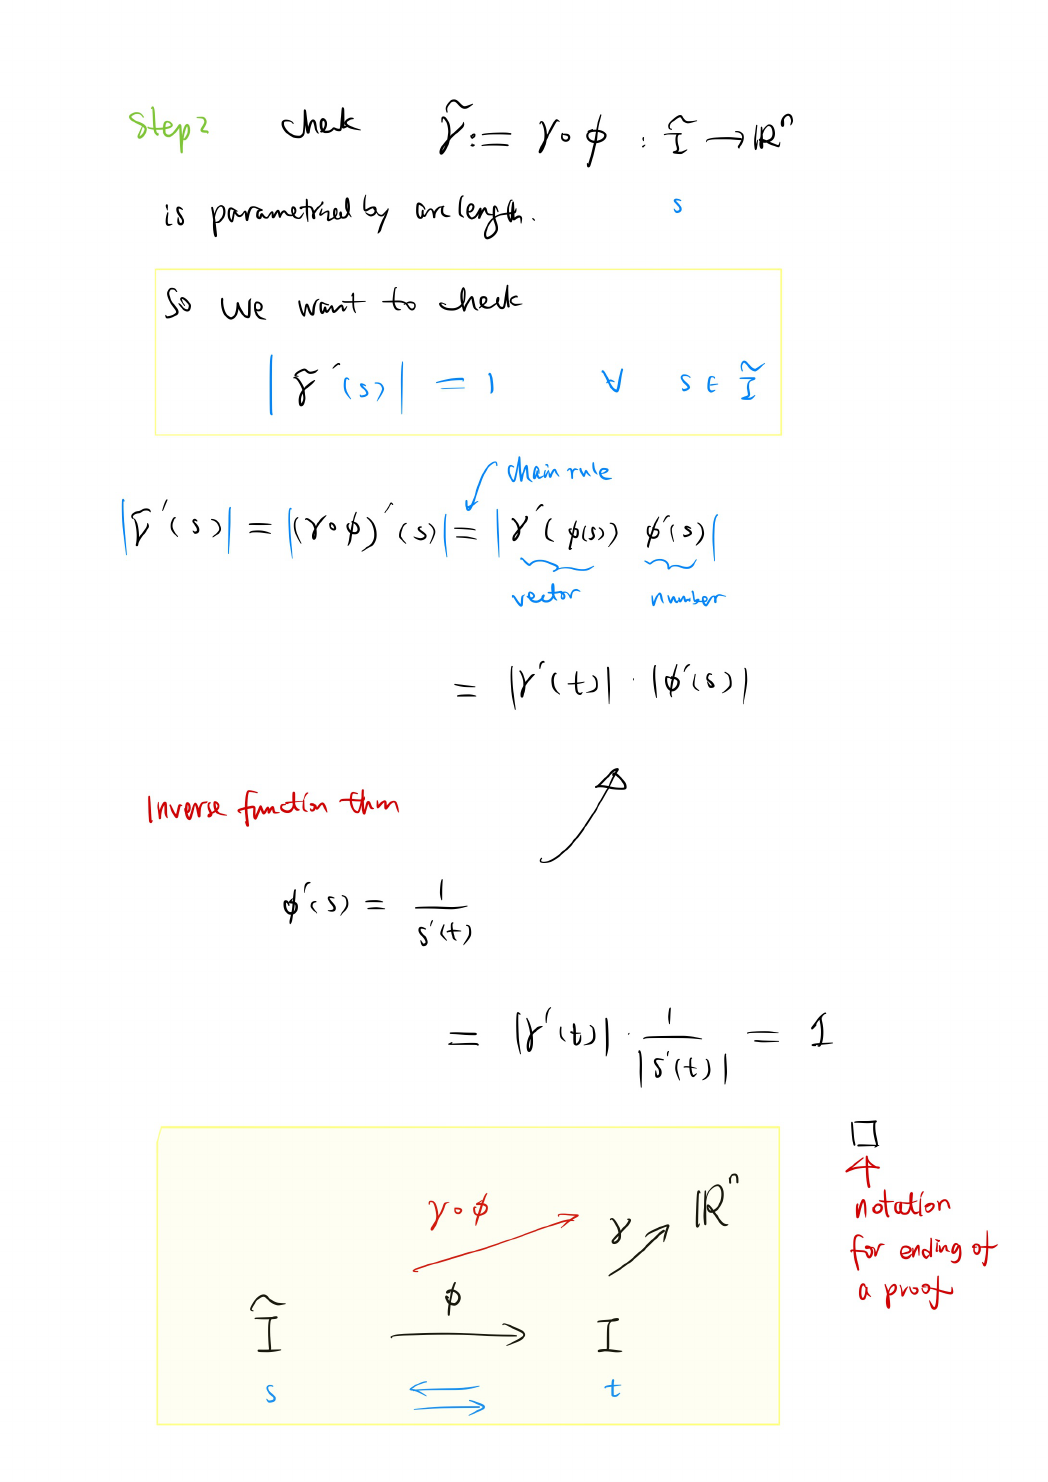 Step 2 check γ̃ := γ∘ϕ : Ĩ → ℝⁿ
is parametrized by arc length. s
So we want to check
|γ̃′(s)| = 1 ∀ s ∈ Ĩ
chain rule
|γ̃′(s)| = |(γ∘ϕ)′(s)| = |γ′(ϕ(s)) ϕ′(s)|
vector number
= |γ′(t)| · |ϕ′(s)|
Inverse function thm
ϕ′(s) = 1/s′(t)
= |γ′(t)| · 1/|s′(t)| = 1
□
notation
for ending of
a proof
γ∘ϕ γ ℝⁿ
ϕ
Ĩ I
s t